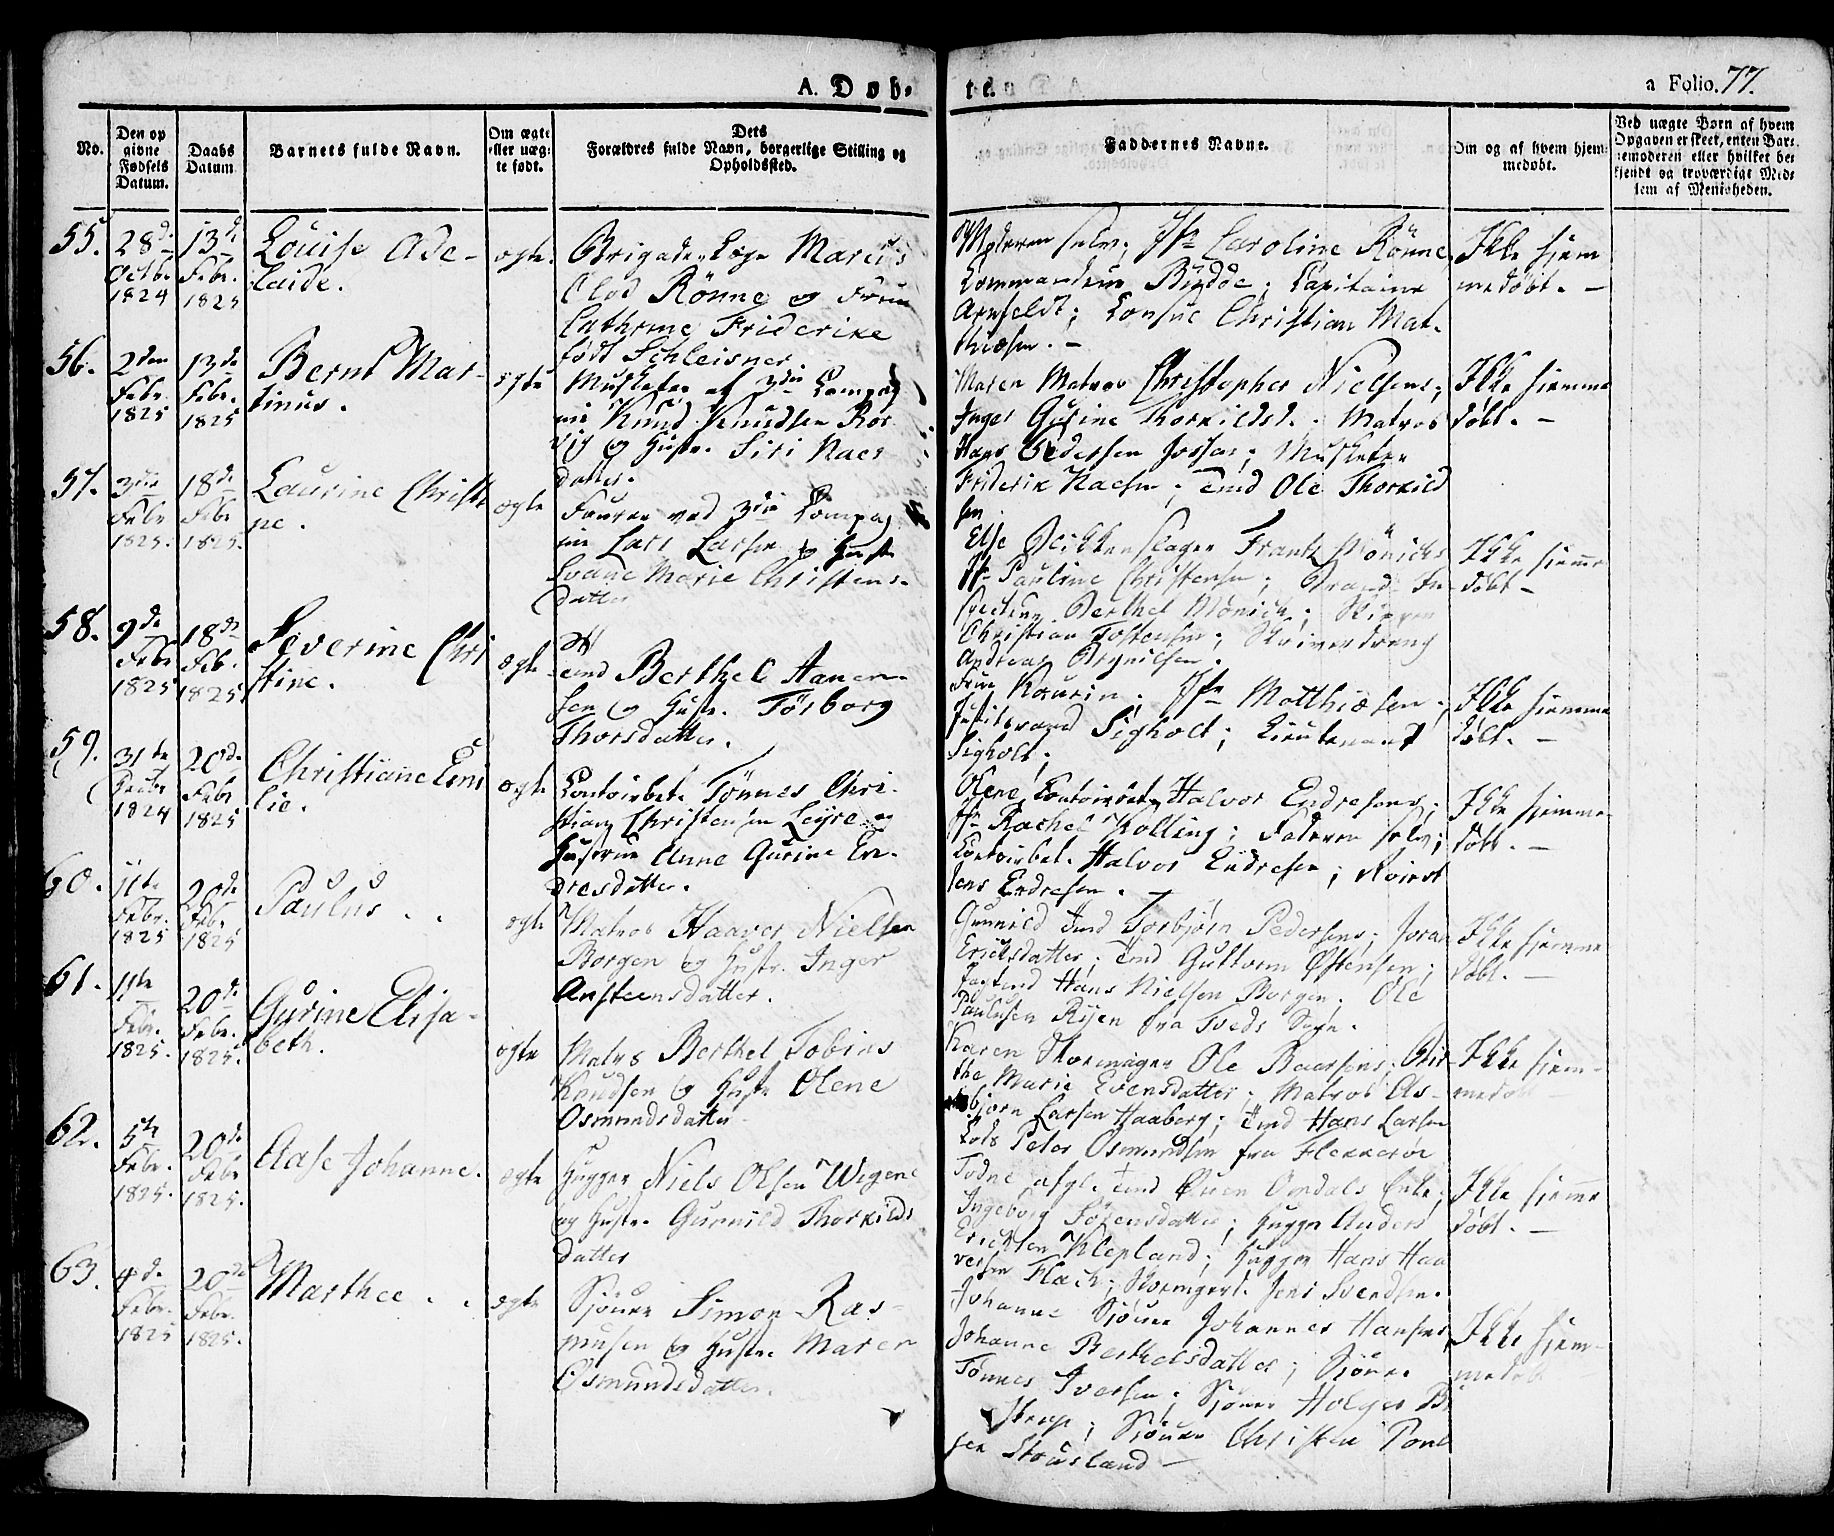 A. Døb-
te.
a Folio. 77.
No.
Den op
givne
Fødsels
Datum.
Daabs
Datum
Barnets fulde Navn.
Om ægte
eller uæg-
te født.
Dets
Forældres fulde Navn, borgerlige Stilling og
Opholdssted.
Faddernes Navne.
Om og af hvem hjem-
medøbt.
Ved uægte Børn af hvem
Opgaven er skeet, enten Bar-
nemoderen eller hvilket be-
kjendt og troværdigt Med-
lem af Menigheden.
55.
28de
Octbr
1824
13de
Febr.
1825
Louise Ade-
laide.
ægte.
Brigade Læge Marcus
Olod Rönne og Frue
Cathrine Friderike
født Schleisner.
Moderen selv; Jfr Caroline Rönne
Commandeur Budde; Capitaine
Arnfeldt; Consul Christian Mat-
thiæsen. -
Ikke hjem
medøbt. -
56.
2den
Febr
1825
13de
Febr.
1825
Bernt Mar-
tinus.
ægte
Musketer af 3die Compag
nie Knud Knudsen Ros
vig og Hustr. Siri Naes
datter.
Maren Matros Christopher Nielsens;
Inger Gurine Thorkildsd.; Matros
Hans Pedersen ; Musketer
Friderik Naesen; Tmd Ole Thorkild
sen.
Ikke hjemme
døbt. -
57.
3die
Febr
1825.
18de
Febr
1825.
Laurine Christi
ne.
ægte
Fourer ved 3die Compag
nie Lars Larsen og Hustr
Svane Marie Christens-
datter
Else Blikkenslager Frantz Mönichs
Jfr Pauline Christensen; Brand In-
specteur Berthel Mönich;
Christian Tostensen; Skriverdreng
Andreas Brynilsen.
Ikke hjemme
døbt -
58.
9de
Febr
1825
18de
Feb.
1825
Severine Chri
stine.
ægte
Tmd Berthel Hansen-
sen og Hustr. Törborg
Thorsdatter.
Frue ; Jfr Matthiæsen;
Justitsraad Sigholt; Lieutenant
Sigholt.
Ikke hjemme
døbt. -
59.
31te
1824
20de
Febr
1825
Christiane Emi
lie.
ægte
Contoirbet. Tönnes Chri-
stian Christensen Leyre og
Hustrue Anne Gurine En-
dresdatter.
Olene Contoirbet. Halvor Endresens;
Jfr Rachel Kolling; Faderen selv;
Contoirbet. Halvor Endresen;
Jens Endresen. -
Ikke hjemme-
døbt. -
60.
11te
Febr.
1825
20de
Febr
1825
Paulus . .
ægte
Matros Haaver Nielsen
Borgen og Hustr. Inger
Ansteensdatter.
Gunnild Tmd Torbjörn Pedersens; Joran
Ericksdatter; Tmd Guttorm Östensen;
Hans Nielsen Borgen; Ole
Paulusen Ryen fra Tveds Sogn.
Ikke hjemme
døbt. -
61.
11te
Febr.
1825.
20de
Febr.
1825.
Gurine Elisa-
beth.
ægte
Matros Berthel Tobias
Knudsen og Hustr Olene
Osmundsdatter
Karen Ole Baarsens; Bir-
the Marie Evensdatter; Matros As-
björn Larsen Haaberg; Tmd Hans Larsen
Lods Peter Osmundsen fra Flekkeröe
Ikke hjem-
medøbt -
62.
5te
Febr.
1825.
20de
Febr
1825.
Aase Johanne.
ægte
Hugger Niels Olsen Wegene
og Hustr. Gunnild Thorkilds
datter
Todne afgl. Tmd Omdals Enke;
Ingeborg Sörensdatter; Hugger Anders
Ericksen Klepland; Hugger Hans Haa
versen Flack; Jens Svendsen.
Ikke hjemme
døbt. -
63.
4de
Febr.
1825
20de
Febr.
1825.
Marthee . .
ægte
Sjöuer Simon Ras-
musen og Hustr. Maren
Osmundsdatter.
Johanne Sjöuer Johannes Hansens
Johanne Berthelsdatter; Sjöuer
Tönnes Iversen; Sjöuer Holger Bi
strup; Sjöuer Christen Povel
sen Strusland -
Ikke hjem-
medøbt